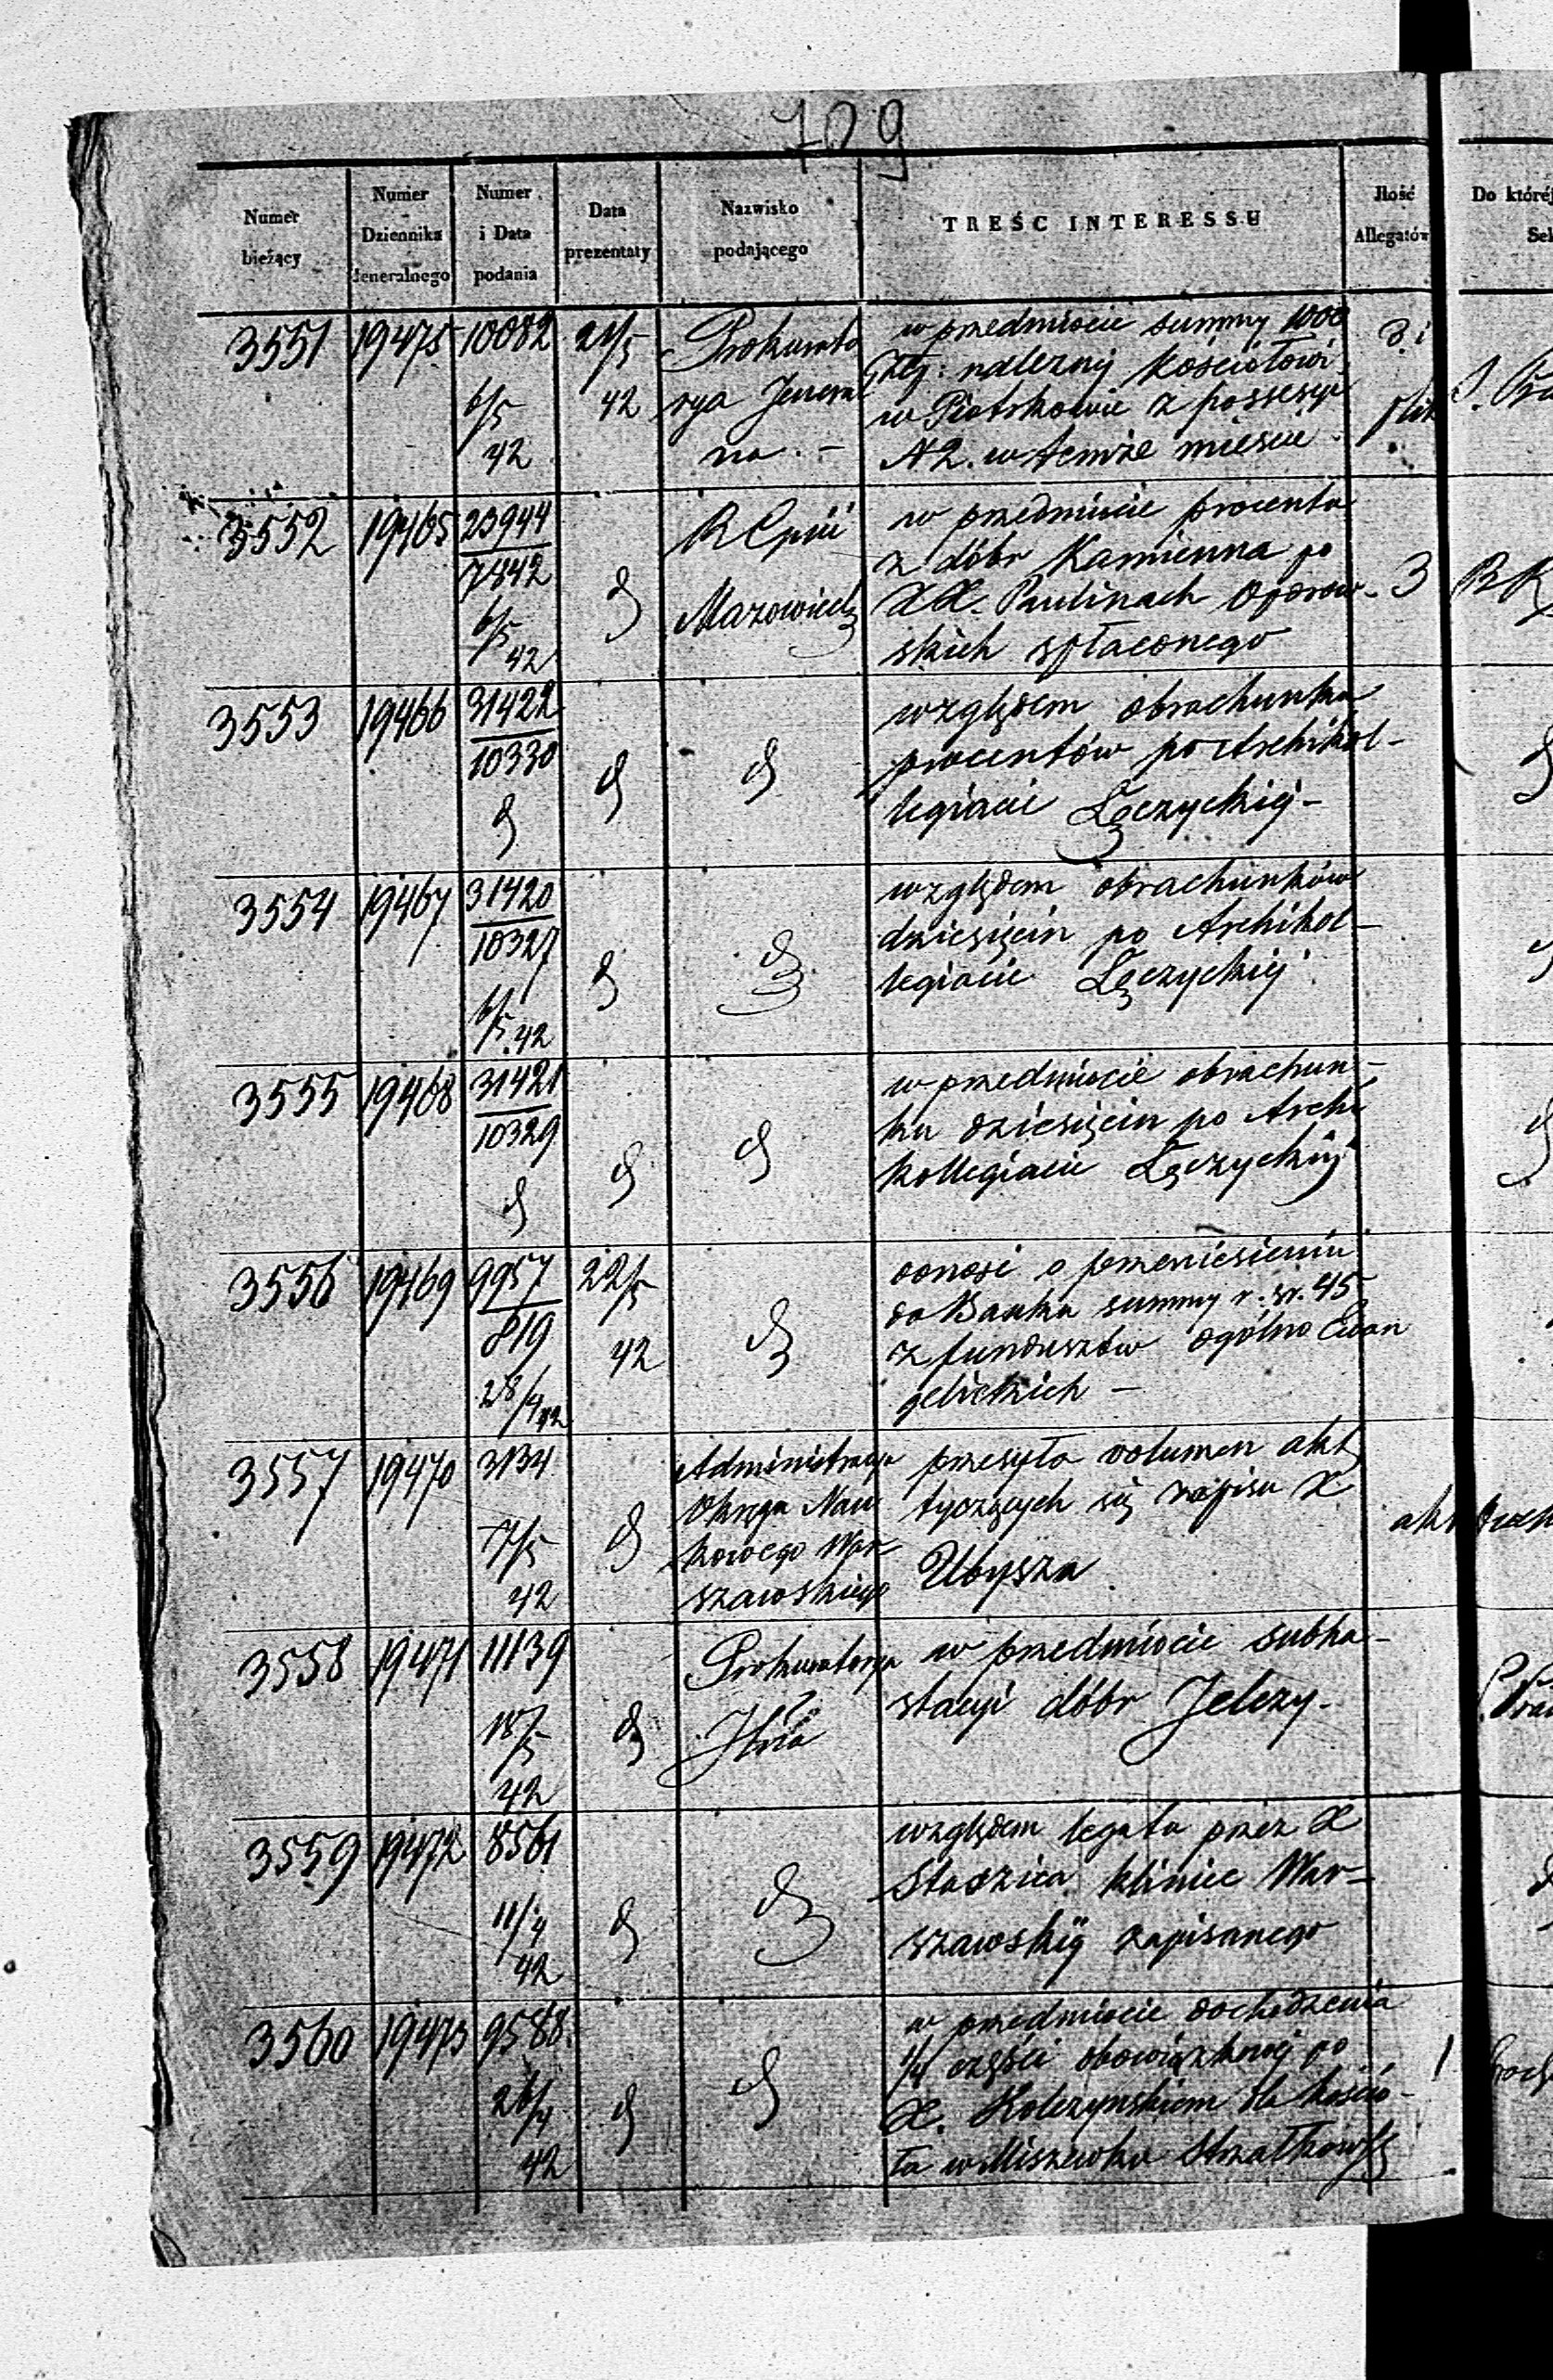 709
Numer bieżący
Numer Dziennika Jeneralnego
Numer i Data podania
Data prezentaty
Nazwisko podającego
TREŚĆ INTERESSU
Ilość Allegatów
Do któréj
3551 19475 10082 6/5 42 21/5 42
Prokurato
rya Jeneral
na. –
w przedmiocie summy 1000
należnej Kościołowi
w Piotrkowie z possesyi
N 2. w temże mieście
3552 19465 23944/7842 6/5 42
Mazowieck
3
w przedmiocie procentu
z dóbr Kamienna po
XX. Paulinach Oporow-
skich spłaconego
3553 19466 31422/10330
względem obrachunku
procentów po Archikol-
legiacie Łęczyckiej –
3554 19467 31420/10327 6/5 42
względem obrachunków
dziesięcin po Archikol-
legiacie Łęczyckiej
3555 19468 31421/10329
w przedmiocie obrachun-
ku dziesięcin po Archi
kollegiacie Łęczyckiej
3556 19469 9957/819 28/4 42 22/5 42
donosi o przeniesieniu
do Banku summy r. sr. 45
z funduszów ogólno Ewan
gelickich –
3557 19470 3134 7/5 42
Administracya
Okręgu Nau
kowego War
szawskiego
przesyła volumen akt
tyczących się zapisu X
Ubysza
akt
3558 19471 11139 18/5 42
Prokuratorya
w przedmiocie subha-
stacyi dóbr Jelczy –
3559 19472 8561 11/4 42
względem legatu przez X
Staszica klinice War-
szawskiej zapisanego
3560 19473 9588 26/4 42
w przedmiocie dochodzenia
1/4 części obowiązkowej po
X. Kolczyńskiem dla kościo-
ła w Miszewku Strzałkowsk
1